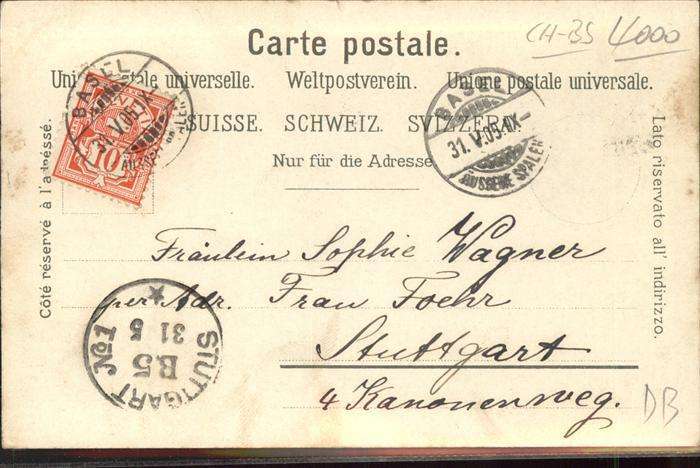 CH-BS 4000
Carte postale.
Union postale universelle. Weltpostverein. Unione postale universale.
SUISSE. SCHWEIZ. SVIZZERA.
Nur für die Adresse
Côté réservé à l'adresse.
Lato riservato all' indirizzo.
BASEL
31.V.05.IX-
ÄUSSERE SPALEN
10
BASEL
31.V.05.IX-
ÄUSSERE SPALEN
Fräulein Sophie Wagner
per Adr. Frau Foehr
Stuttgart
4 Kanonenweg.
STUTTGART No1
B5
31 5
DB